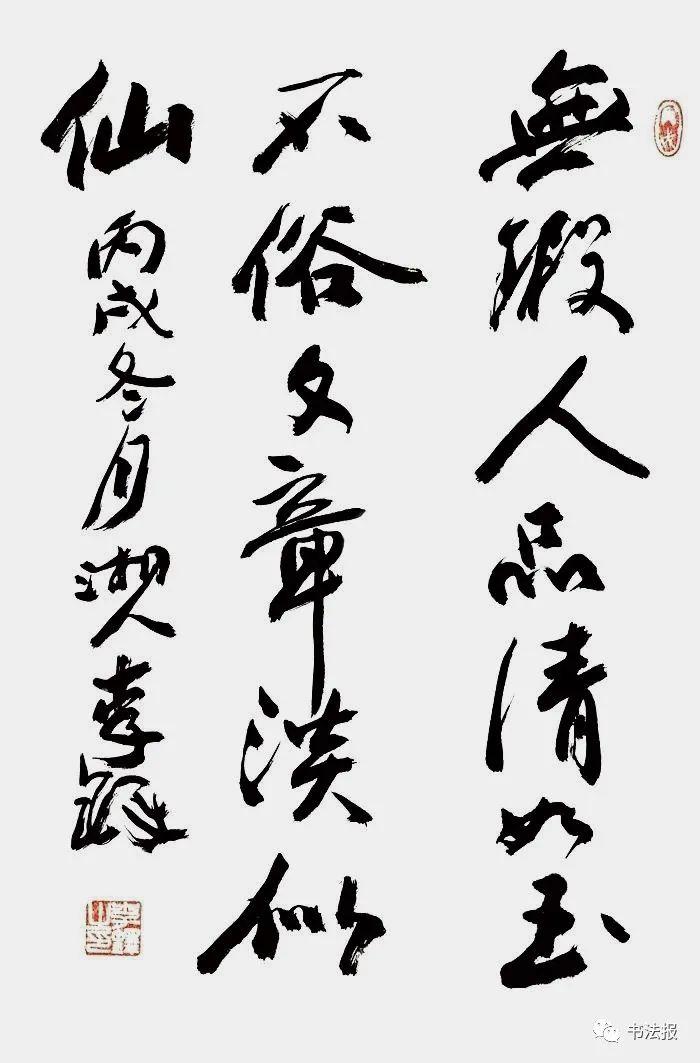 無瑕人品清如玉
不俗文章淡似
仙
丙戌冬月湘人李鐸
李鐸之印
书法报